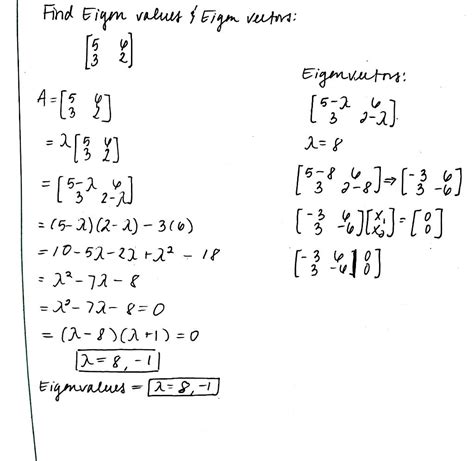 Find Eigen values & Eigen vectors:
[5 6
3 2]
A = [5 6
3 2]
= λ[5 6
3 2]
= [5-λ 6
3 2-λ]
= (5-λ)(2-λ) - 3(6)
= 10 - 5λ - 2λ + λ² - 18
= λ² - 7λ - 8
= λ² - 7λ - 8 = 0
= (λ-8)(λ+1) = 0
λ = 8, -1
Eigenvalues = λ = 8, -1
Eigenvectors:
[5-λ 6
3 2-λ]
λ = 8
[5-8 6
3 2-8] ⇒ [-3 6
3 -6]
[-3 6
3 -6][x₁
x₂] = [0
0]
[-3 6 | 0
3 -6 | 0]